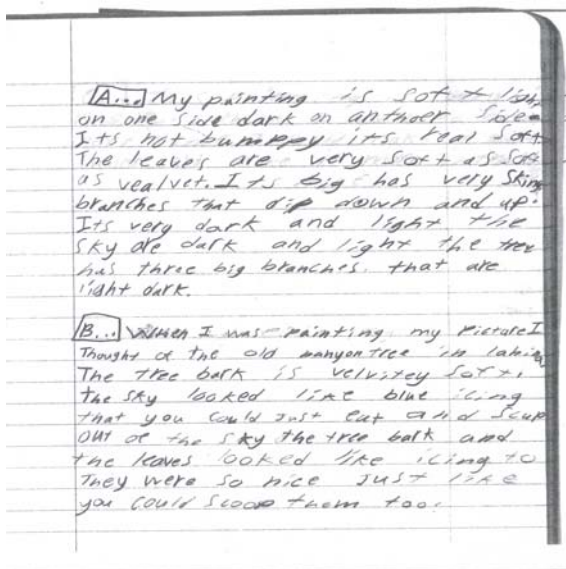 A... My painting is soft + light
on one side dark on anthoer side
Its not bumppy its real soft
The leaves are very soft as soft
as vealvet. Its big has very skiny
branches that dip down and up.
Its very dark and light the
sky are dark and light the tree
has three big branches. that are
light dark.
B... When I was painting my Picture I
Thought of the old banyon tree in
The tree bark is velvitey soft.
the sky looked like blue icing
that you could just eat and scup
out of the sky the tree bark and
the leaves looked like icing to
They were so nice Just like
you could scoop them too.